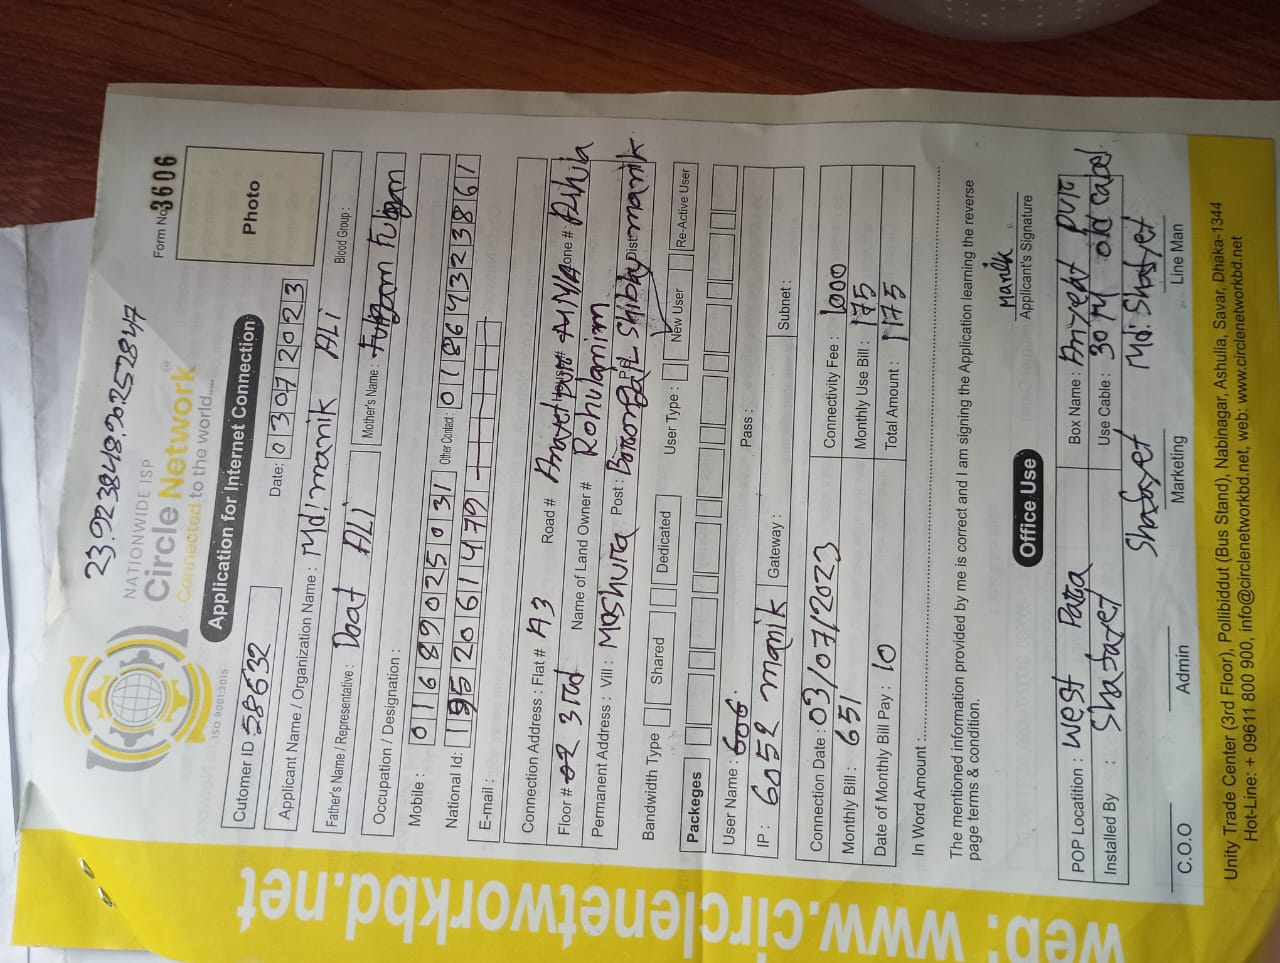 23.923848,90.252847
Form No. 3606
NATIONWIDE ISP
Circle Network
Connected to the world.....
ISO 9001:2015
Photo
Application for Internet Connection
Cutomer ID 58632
Date: 03072023
Applicant Name / Organization Name : Md: manik ALi
Father's Name / Representative : Doat ALi
Mother's Name :
Blood Group :
Occupation / Designation :
Mobile : 01689025031 Other Contact: 01864323861
National Id: 1952061479
E-mail:
Connection Address : Flat # A3 Road # House # Zone # Ashulia
Floor # 02 3rd Name of Land Owner # Rohulamin
Permanent Address : Vill : Mashura Post : P.S: Shibay Dist: manik
Bandwidth Type Shared Dedicated User Type : New User Re-Active User
Packeges
User Name : 606
IP : 6052 manik Gateway : Pass : Subnet :
Connection Date : 03/07/2023 Connectivity Fee : 1000
Monthly Bill : 651 Monthly Use Bill : 175
Date of Monthly Bill Pay : 10 Total Amount : 1175
In Word Amount :
The mentioned information provided by me is correct and I am signing the Application learning the reverse
page terms & condition.
Manik
Applicant's Signature
Office Use
POP Locatition : West Para Box Name :
Installed By : Shafayet Use Cable : 30 M old Cabel
Shafayet Md. Shafayet
C.O.O Admin Marketing Line Man
Unity Trade Center (3rd Floor), Pollibiddut (Bus Stand), Nabinagar, Ashullia, Savar, Dhaka-1344
Hot-Line: + 09611 800 900, info@circlenetworkbd.net, web: www.circlenetworkbd.net
circlenetworkbd.net
web: www.